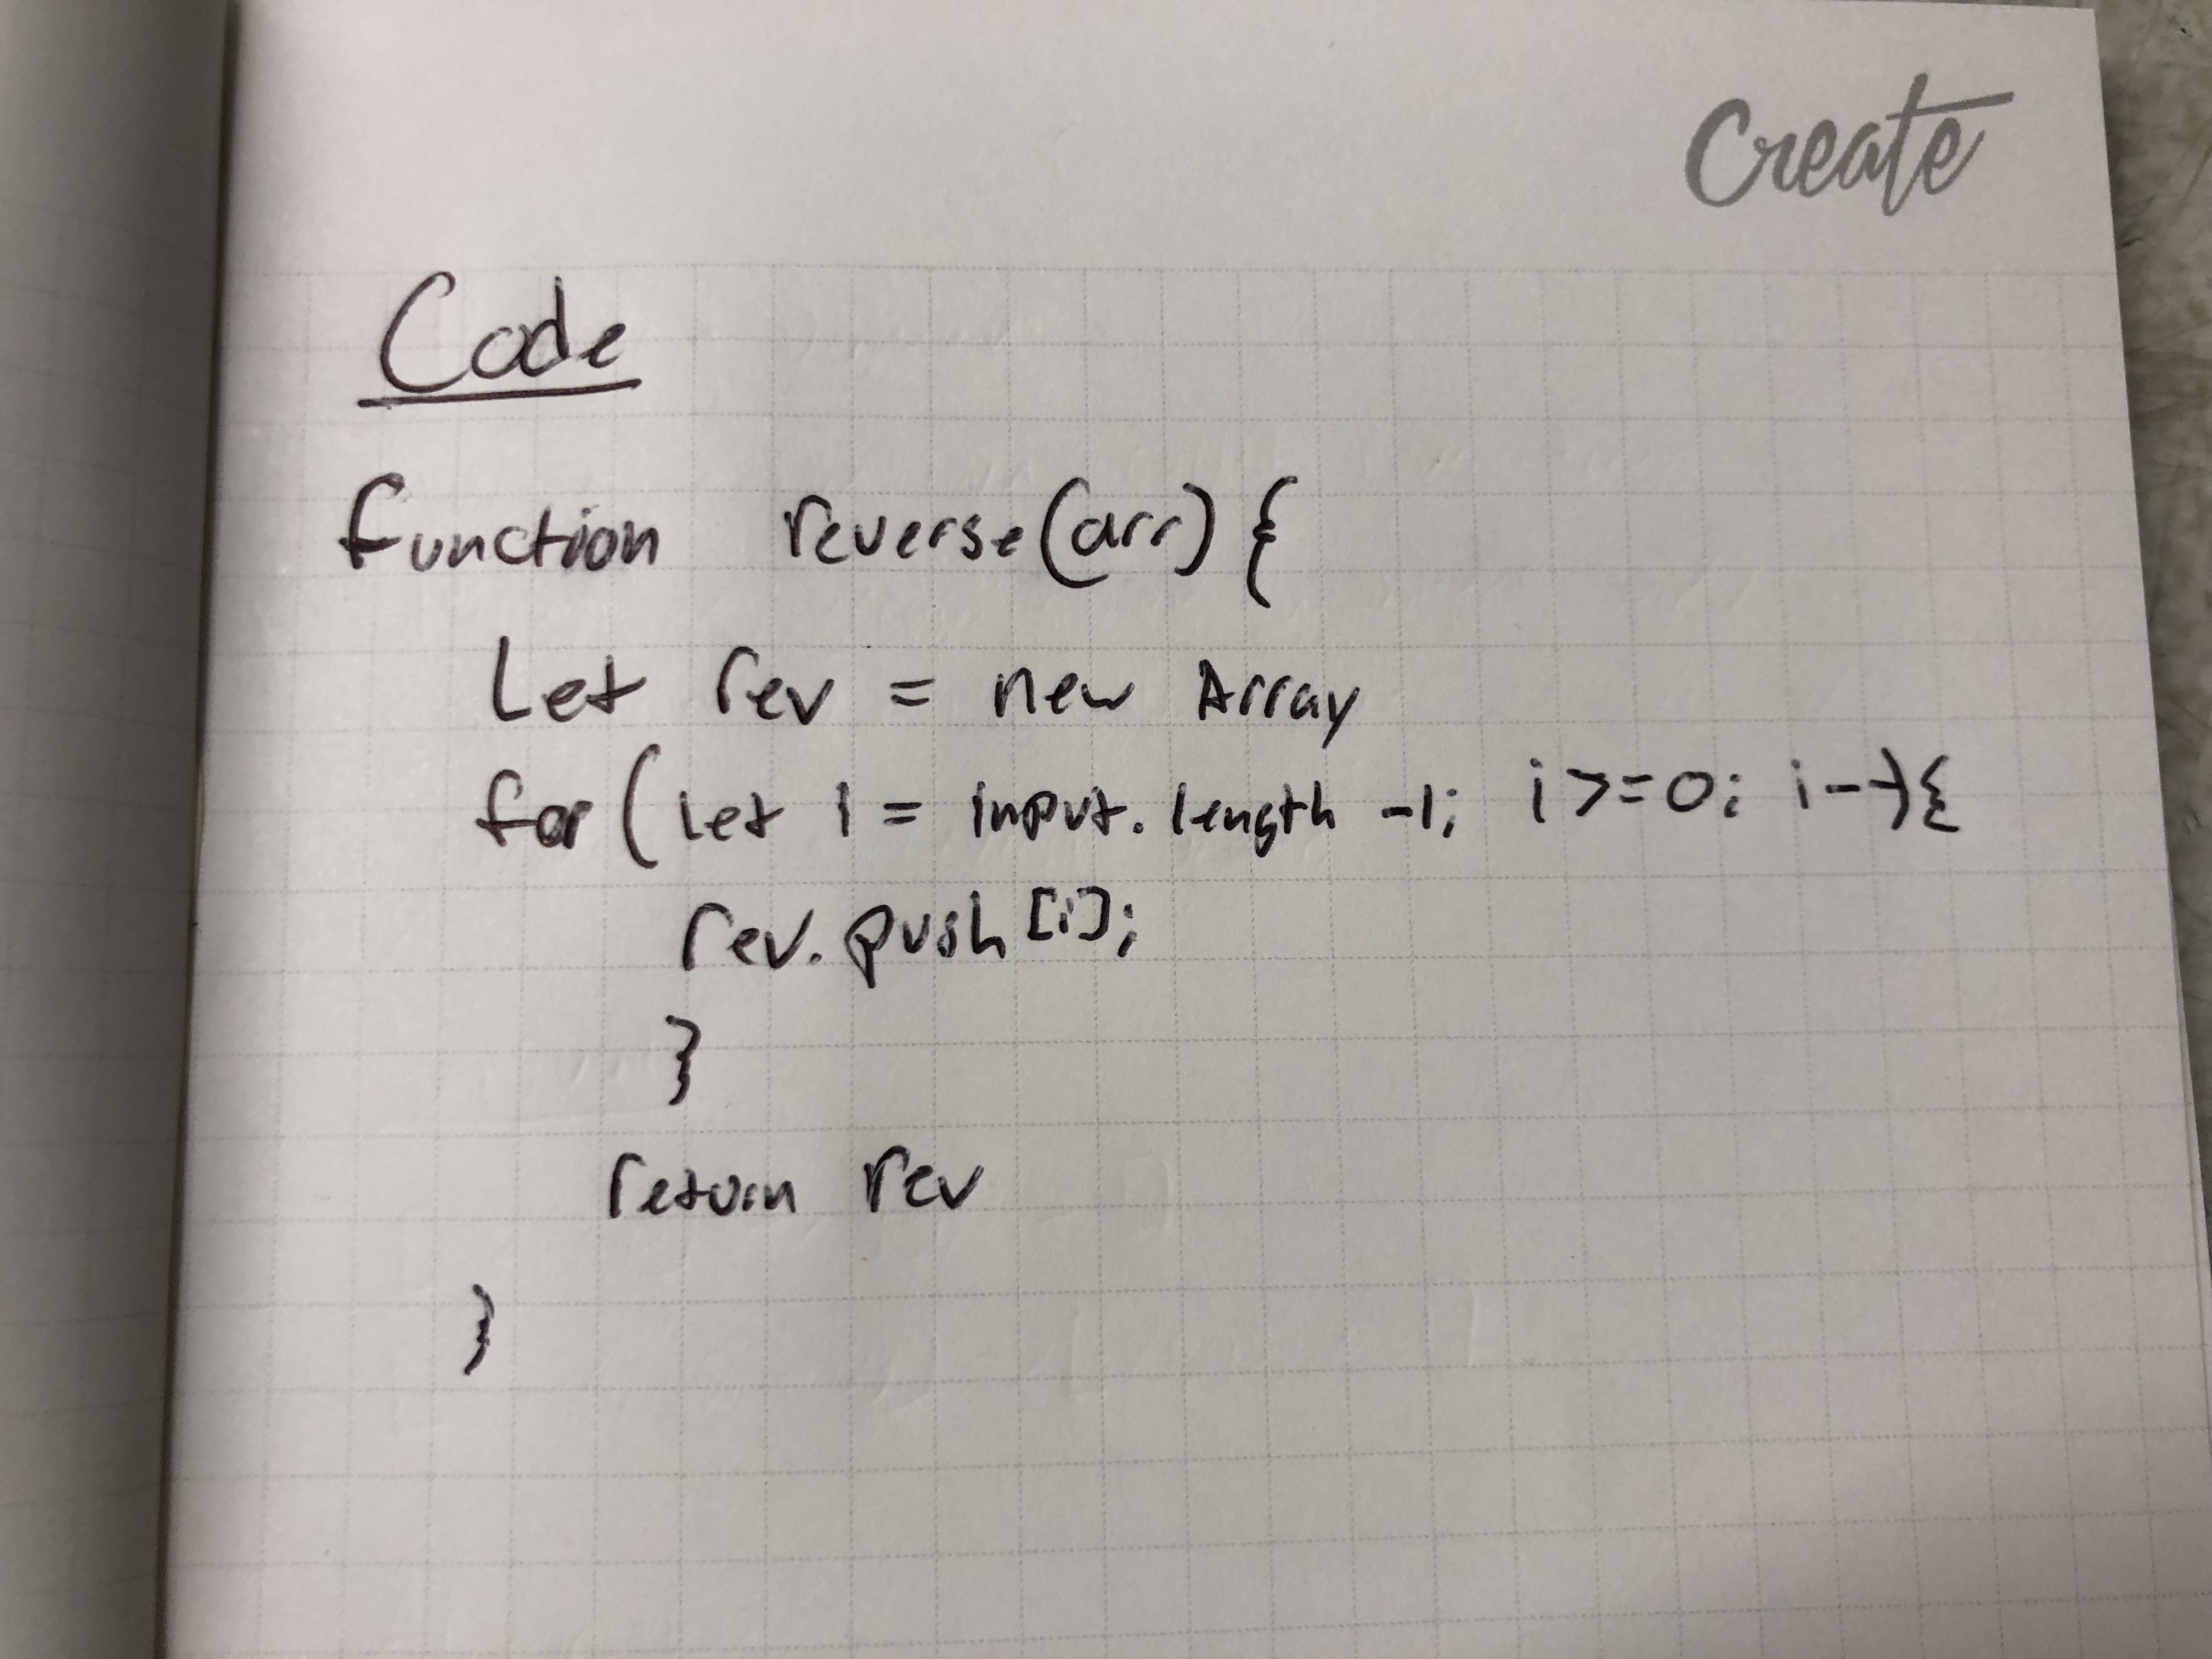 Create
Code
function reverse(arr) {
Let rev = new Array
for (Let i = input.length -1; i >= 0; i--){
rev.push[i];
}
return rev
}